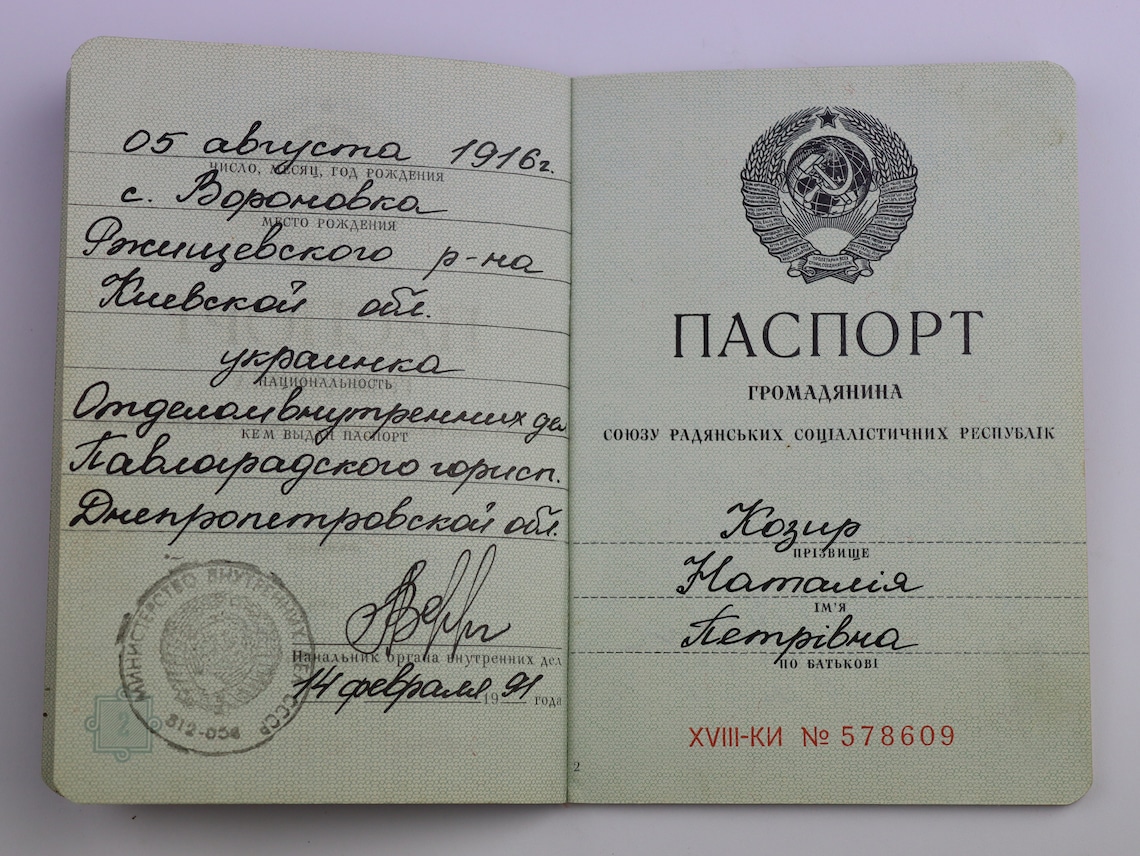 05 августа 1916г.
ЧИСЛО, МЕСЯЦ, ГОД РОЖДЕНИЯ
с. Вороновка
МЕСТО РОЖДЕНИЯ
Ржищевского р-на
Киевской обл.
украинка
НАЦИОНАЛЬНОСТЬ
Отделом внутренних дел
КЕМ ВЫДАН ПАСПОРТ
Павлоградского горисп.
Днепропетровской обл.
МИНИСТЕРСТВО ВНУТРЕННИХ ДЕЛ СССР
812-054
Начальник органа внутренних дел
14 февраля 1991 года
2
2
ПАСПОРТ
ГРОМАДЯНИНА
СОЮЗУ РАДЯНСЬКИХ СОЦІАЛІСТИЧНИХ РЕСПУБЛІК
Козир
ПРІЗВИЩЕ
Наталія
ІМ'Я
Петрівна
ПО БАТЬКОВІ
XVIII-КИ № 578609